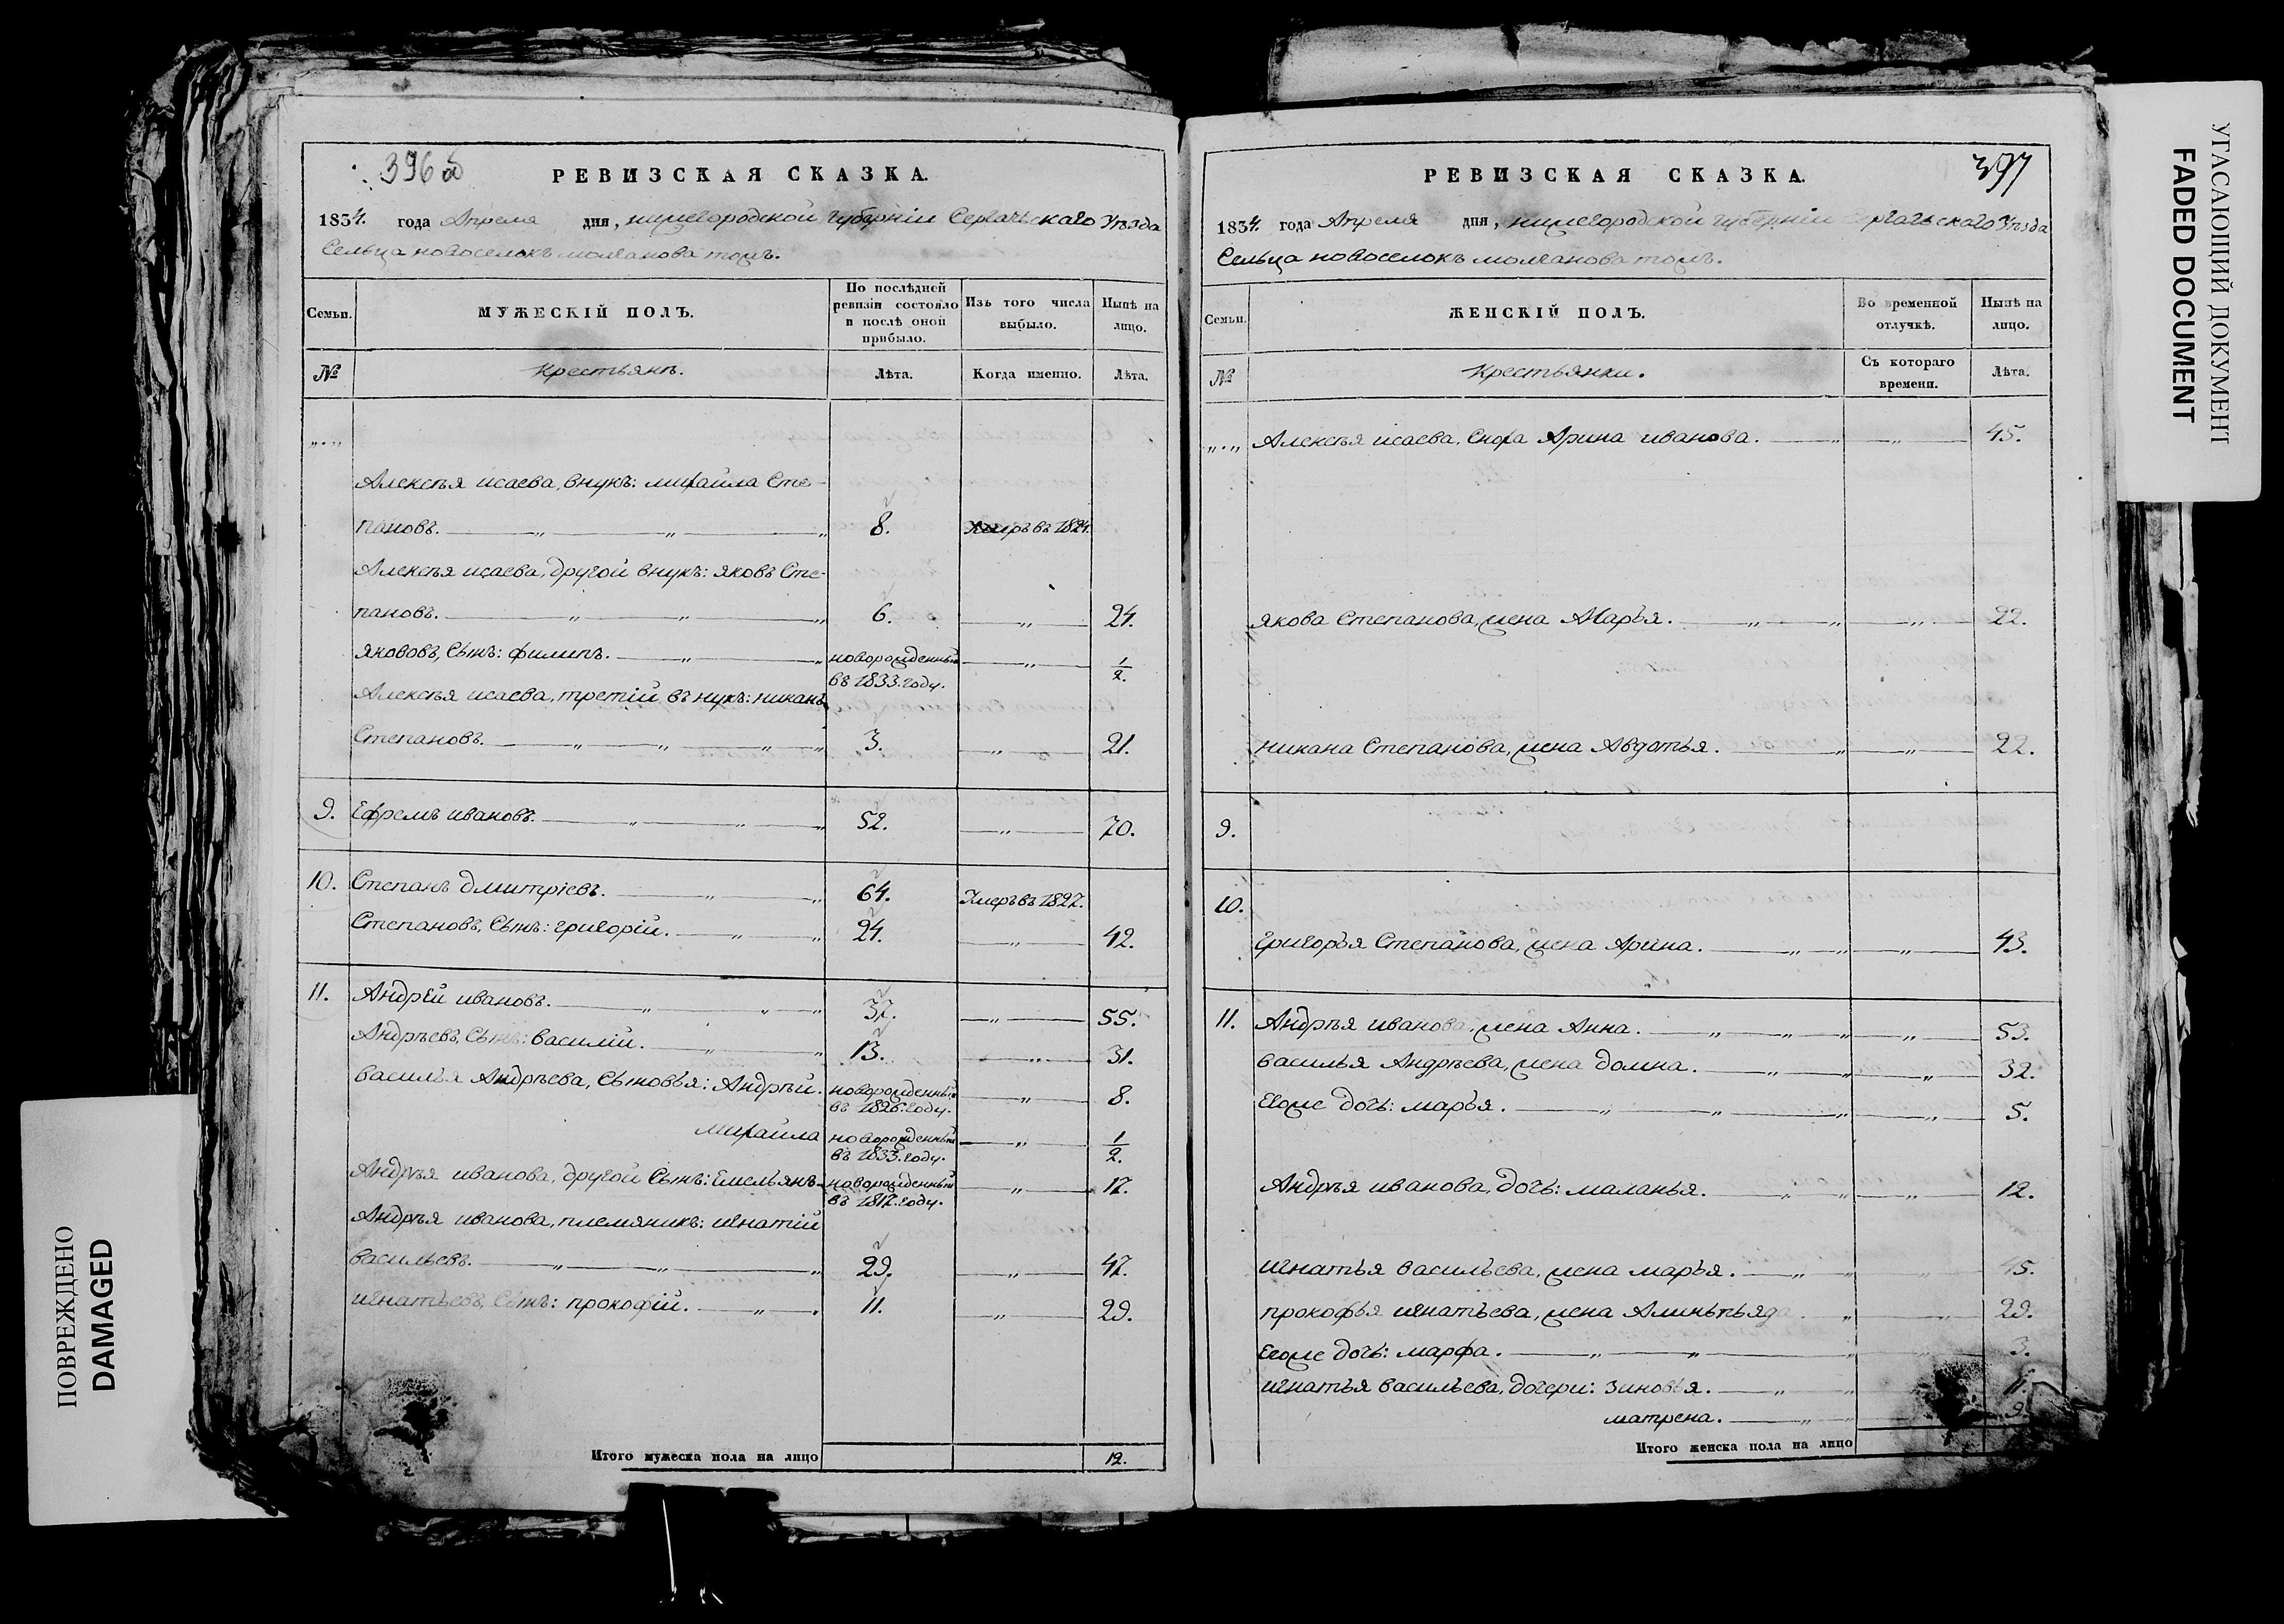 396 об
РЕВИЗСКАЯ СКАЗКА.
1834. года Апреля дня, нижегородской губерніи Сергачьскаго Уѣзда
Сельца новоселокъ молчанова тожъ.
Семьи.
МУЖЕСКІЙ ПОЛЪ.
По послѣдней
ревизіи состояло
и послѣ оной
прибыло.
Изъ того числа
выбыло.
Нынѣ на
лицо.
№
Крестьянъ.
Лѣта.
Когда именно.
Лѣта.
„.„
Алексѣя исаева, внукъ: михайла Сте-
пановъ. 8. Умеръ въ 1824.
Алексѣя исаева, другой внукъ: яковъ Сте-
пановъ. 6. „ 24.
яковъ, Сынъ: филипъ. новорожденный „ 1/2.
въ 1833. году.
Алексѣя исаева, третій внукъ: никанъ
Степановъ. 3. „ 21.
9. Ефремъ ивановъ. 52. „ 70.
10. Степанъ дмитріевъ. 64. Умеръ въ 1827.
Степановъ, Сынъ: григорій. 24. „ 42.
11. Андрей ивановъ. 37. „ 55.
Андрѣевъ, Сынъ: василій. 13. „ 31.
василья Андрѣева, Сыновья: Андрѣй. новорожденный „ 8.
въ 1826. году.
михайла новорожденный „ 1/2.
въ 1833. году.
Андрѣя иванова, другой Сынъ: Емельянъ. новорожденный „ 17.
въ 1817. году.
Андрѣя иванова, племяникъ: игнатій
васильевъ. 29. „ 47.
игнатьевъ, Сынъ: прокофій. 11. „ 29.
Итого мужеска пола на лицо 12.
397
РЕВИЗСКАЯ СКАЗКА.
1834. года Апреля дня, нижегородской губерніи Сергачьскаго Уѣзда
Сельца новоселокъ молчанова тожъ.
Семьи.
ЖЕНСКІЙ ПОЛЪ.
Во временной
отлучкѣ.
Нынѣ на
лицо.
№
Крестьянки.
Съ котораго
времени.
Лѣта.
„.„ Алексѣя исаева, Сноха Арина иванова. „ 45.
якова Степанова, жена Марья. „ 22.
никана Степанова, жена Авдотья. „ 22.
9.
10.
григорья Степанова, жена Арина. „ 43.
11. Андрѣя иванова, жена Анна. „ 53.
василья Андрѣева, жена домна. „ 32.
Егоже дочь: марья. „ 5.
Андрѣя иванова, дочь: маланья. „ 12.
игнатья васильева, жена марья. „ 45.
прокофья игнатьева, жена „ 29.
Егоже дочь: марфа. „ 3.
игнатья васильева, дочери: зиновья. „ 11.
матрена. „ 9.
Итого женска пола на лицо
ПОВРЕЖДЕНО
DAMAGED
УГАСАЮЩИЙ ДОКУМЕНТ
FADED DOCUMENT